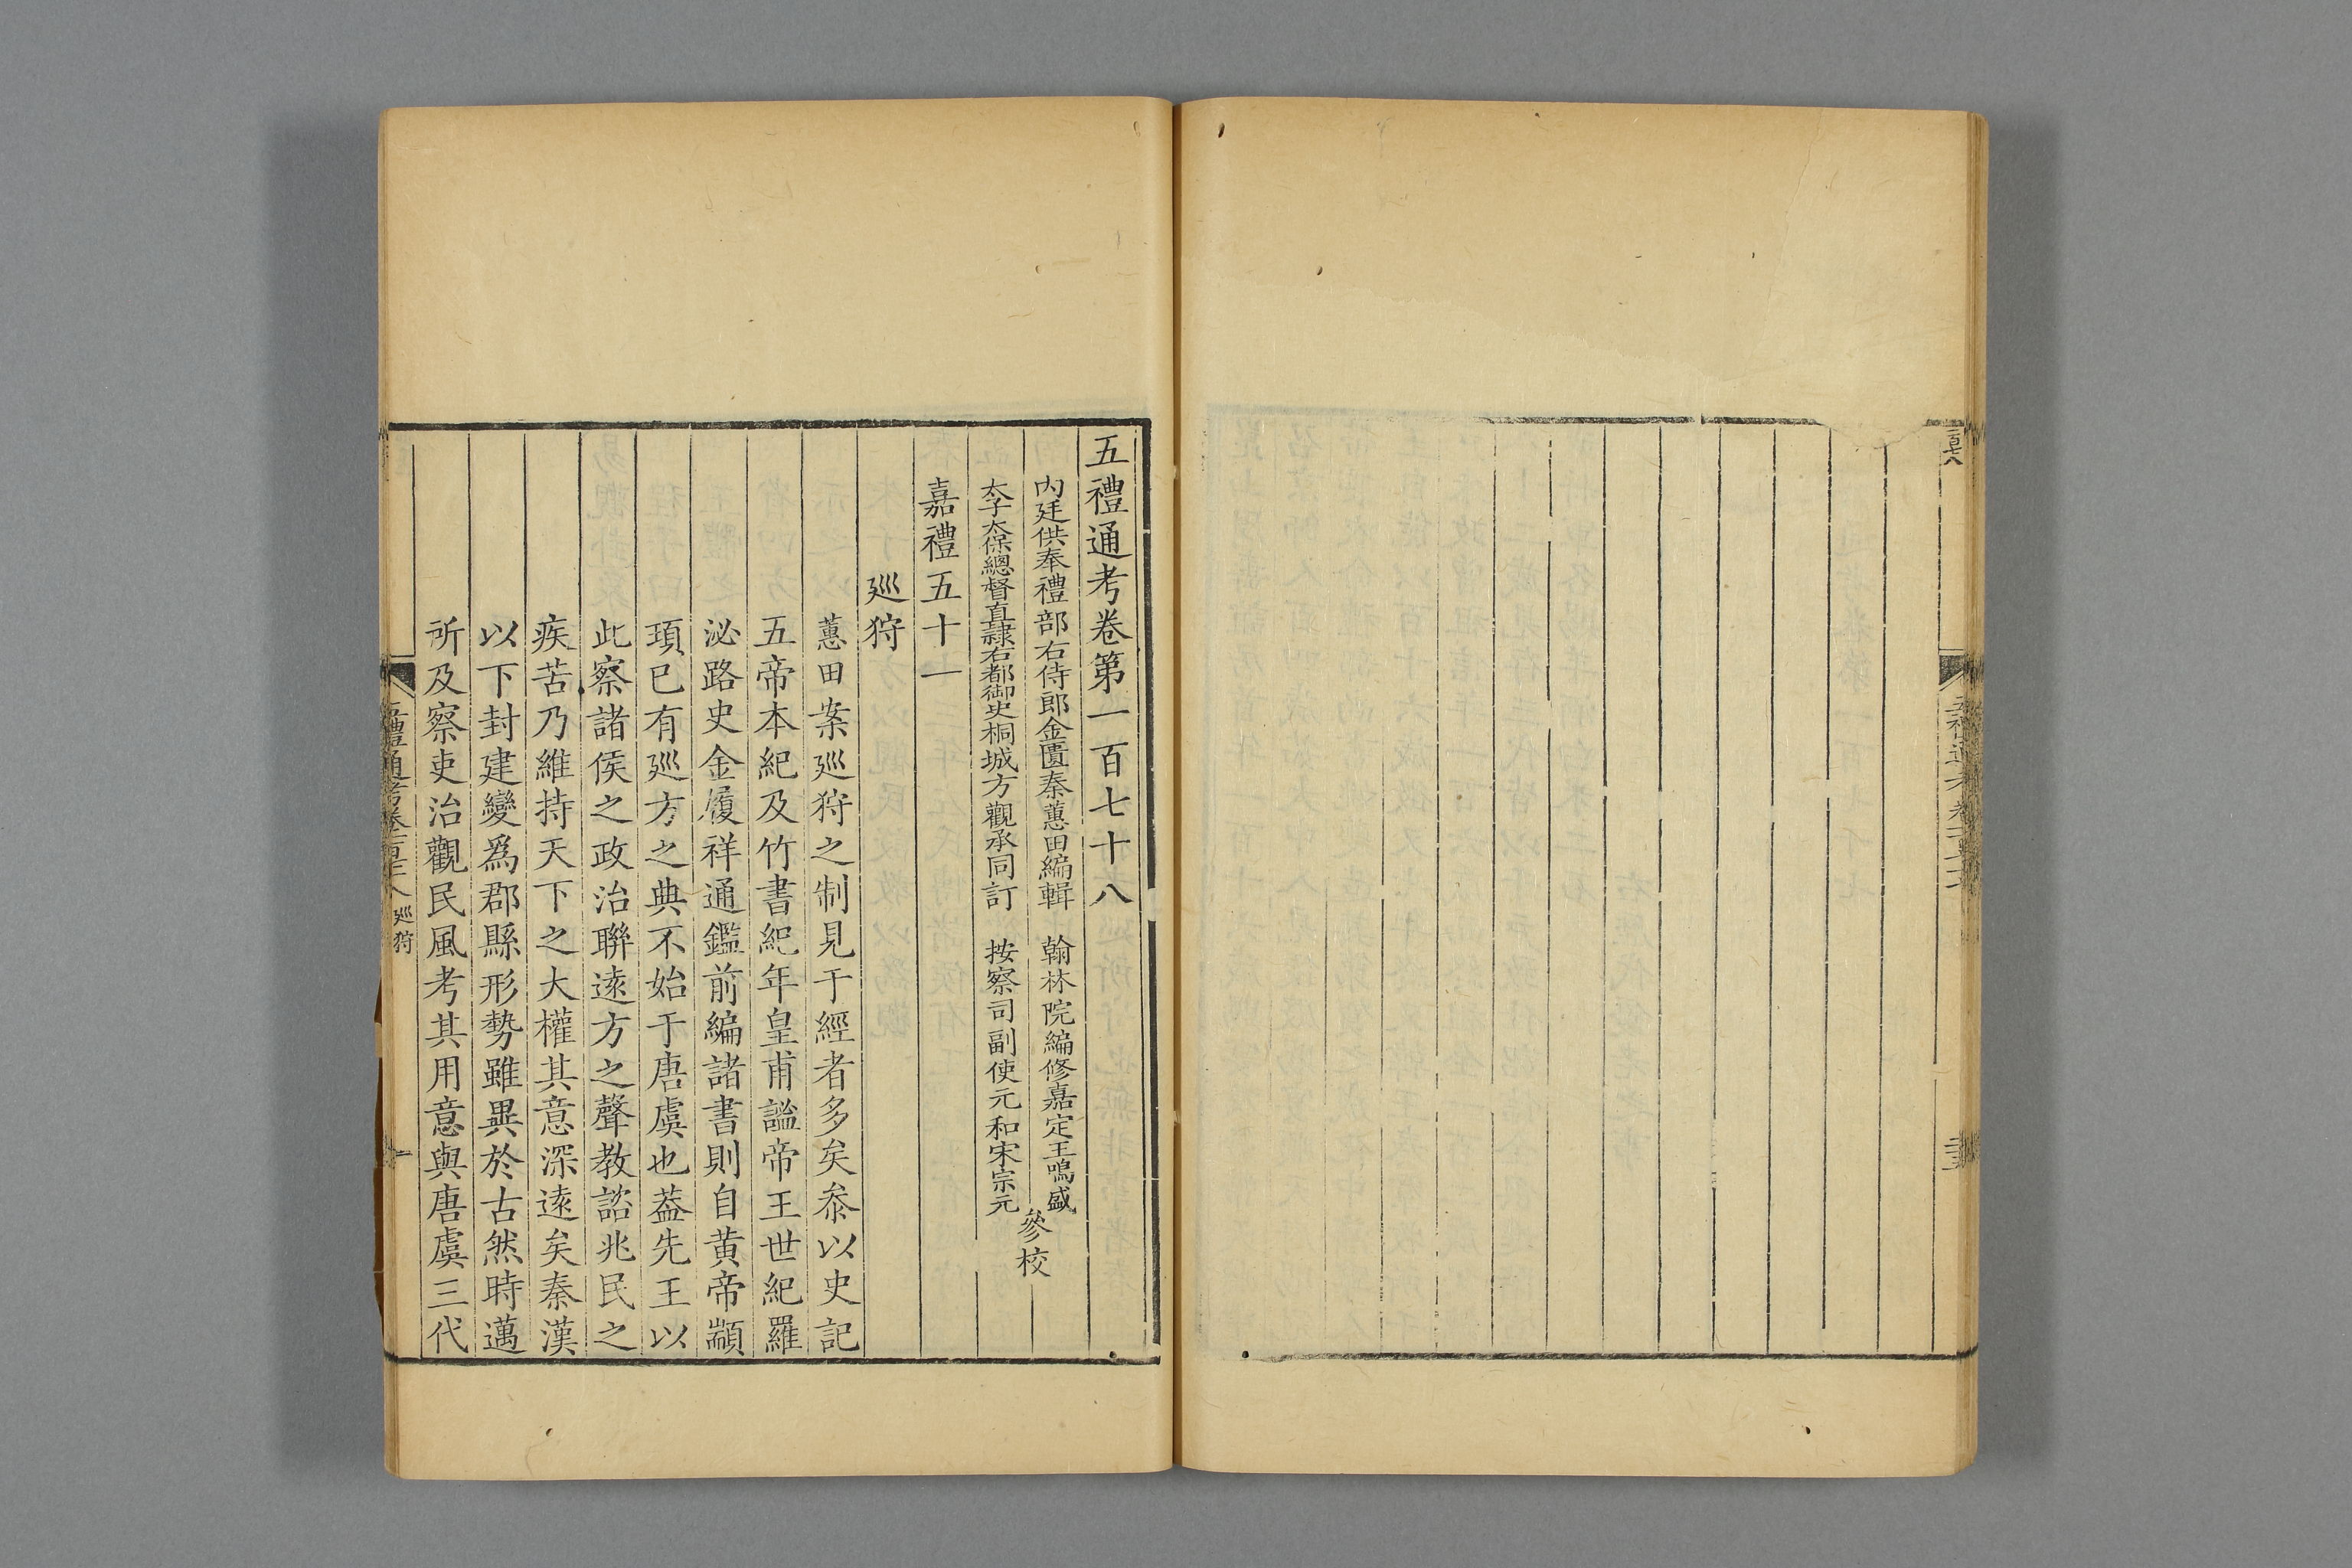 五禮通考卷第一百七十八
內廷供奉禮部右侍郎金匱秦蕙田編輯　翰林院編修嘉定王鳴盛
太子太保總督直隷右都御史桐城方觀承同訂　按察司副使元和宋宗元
參校
嘉禮五十一
廵狩
蕙田案廵狩之制見于經者多矣叅以史記
五帝本紀及竹書紀年皇甫謐帝王世紀羅
泌路史金履祥通鑑前編諸書則自黄帝顓
頊已有廵方之典不始于唐虞也葢先王以
此察諸侯之政治聨逺方之聲教諮兆民之
疾苦乃維持天下之大權其意深逺矣秦漢
以下封建變爲郡縣形勢雖異於古然時邁
所及察吏治觀民風考其用意與唐虞三代
五禮通考卷一百七十八　廵狩　一